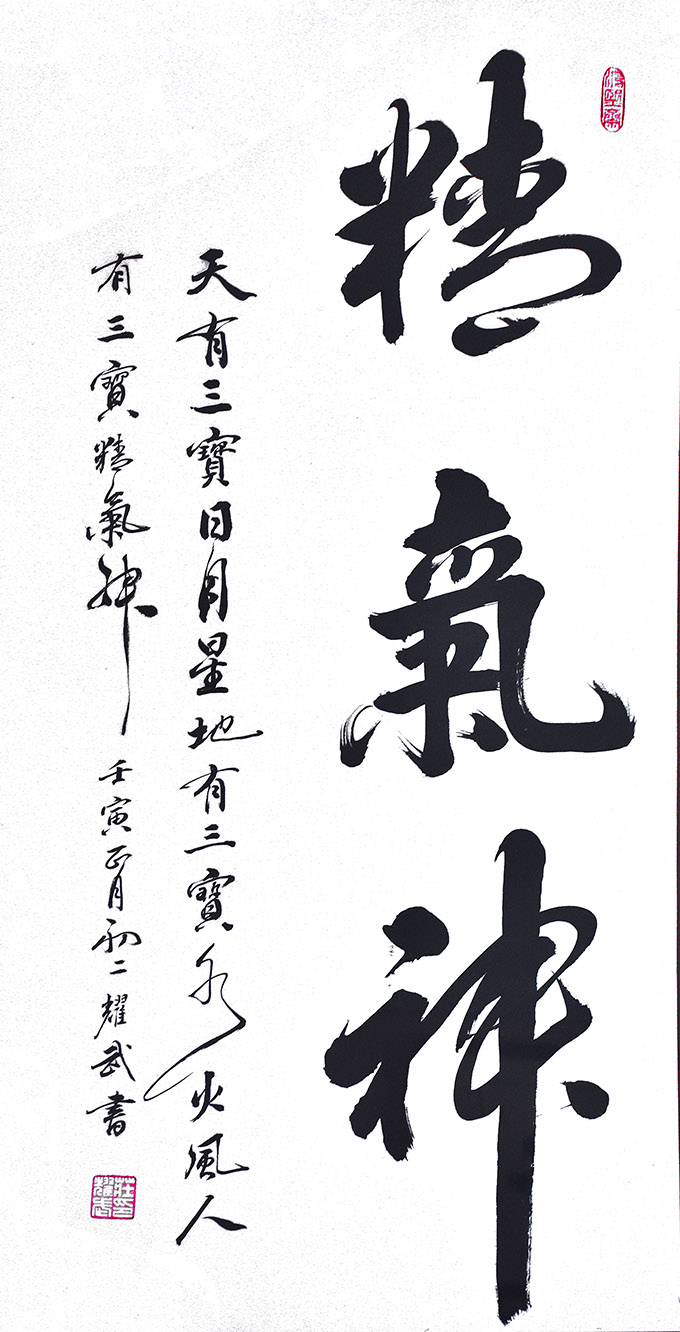 精氣神
天有三寶日月星地有三寶水火風人
有三寶精氣神 壬寅正月初二耀武書